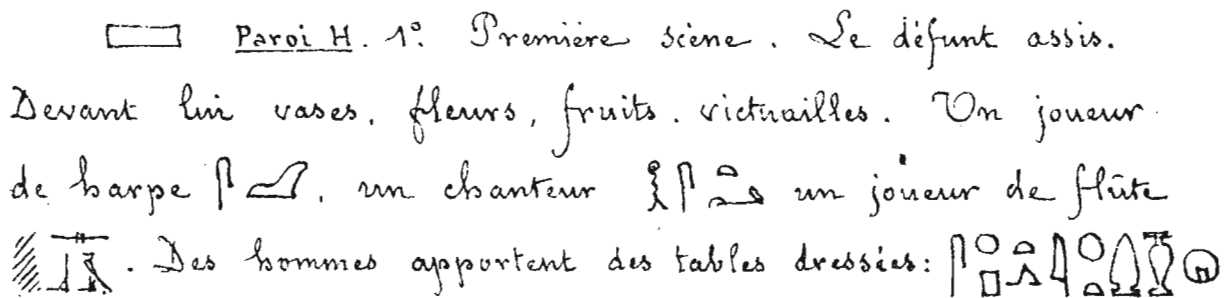 Paroi H. 1º. Première scène. Le défunt assis.
Devant lui vases, fleurs, fruits, victuailles. Un joueur
de harpe , un chanteur un joueur de flûte
. Des hommes apportent des tables dressées: